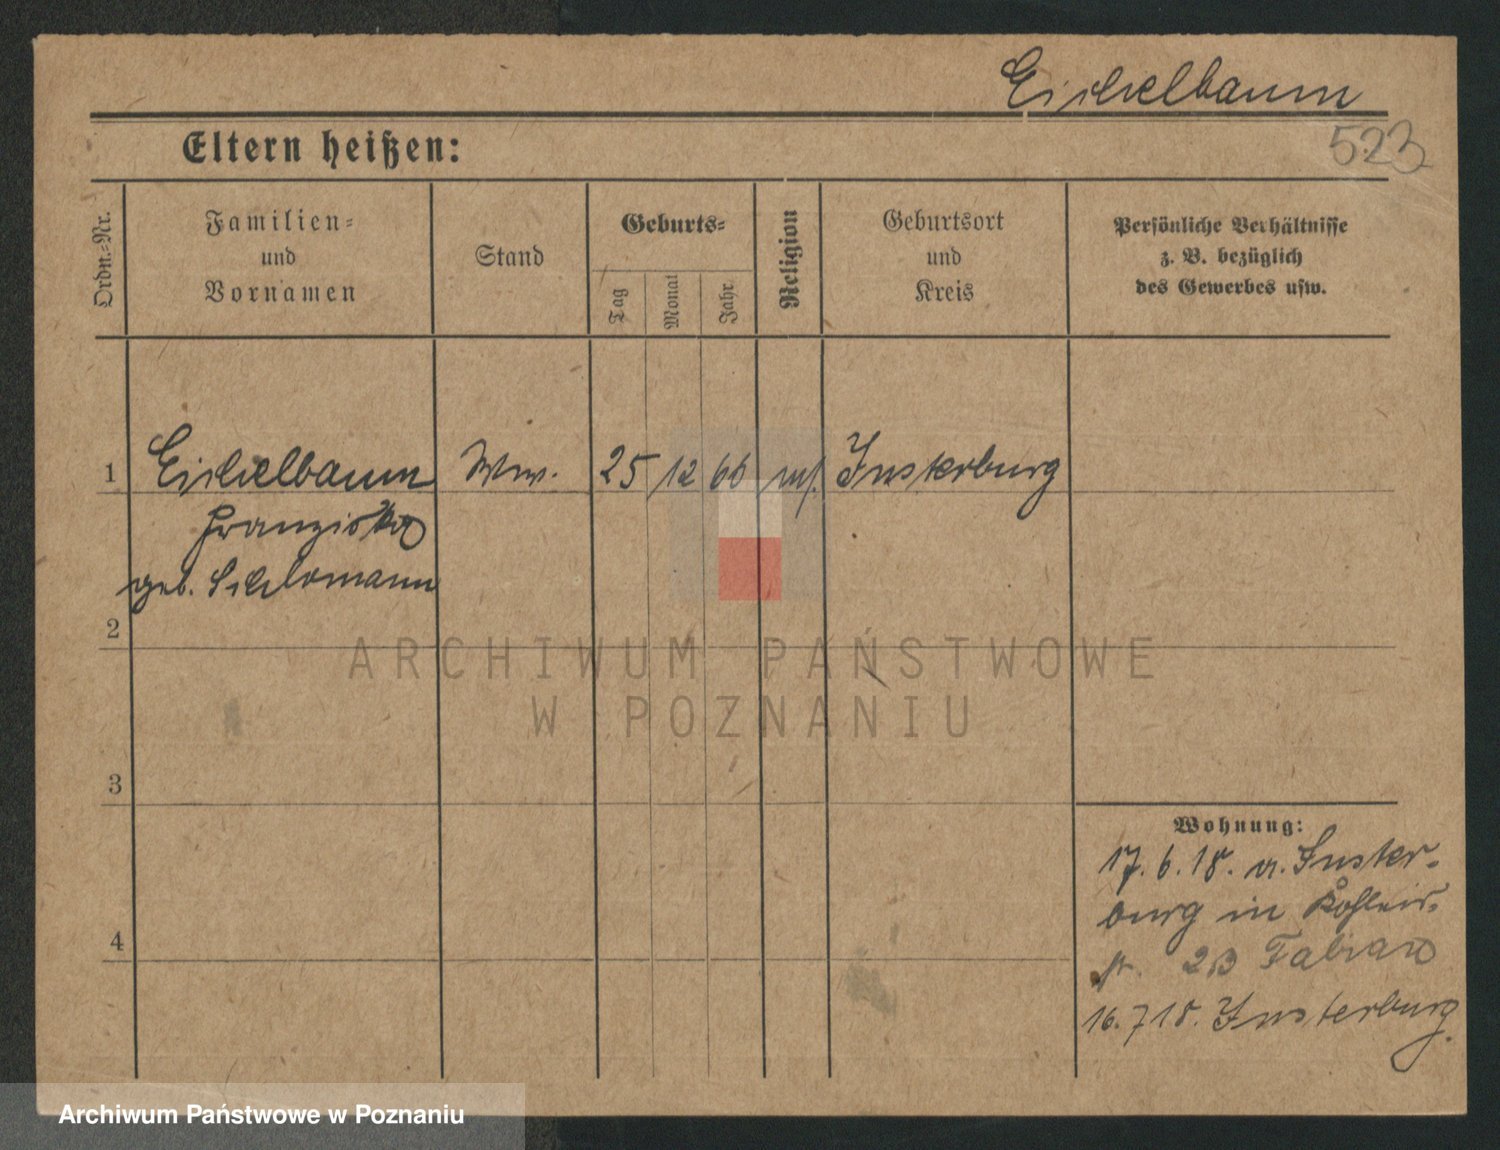 Eichelbaum
523
Eltern heißen:
Ordn.-Nr.
Familien-
und
Vornamen
Stand
Geburts-
Tag
Monat
Jahr
Religion
Geburtsort
und
Kreis
Persönliche Verhältnisse
z. B. bezüglich
des Gewerbes usw.
1 Eichelbaum Ww. 25 12 66 mos. Insterburg
Franziska
geb. Schlomann
2
3
4
Wohnung:
17.6.18. v. Inster-
burg in
23 Fabian
16.7.18. Insterburg.
ARCHIWUM PAŃSTWOWE
W POZNANIU
Archiwum Państwowe w Poznaniu